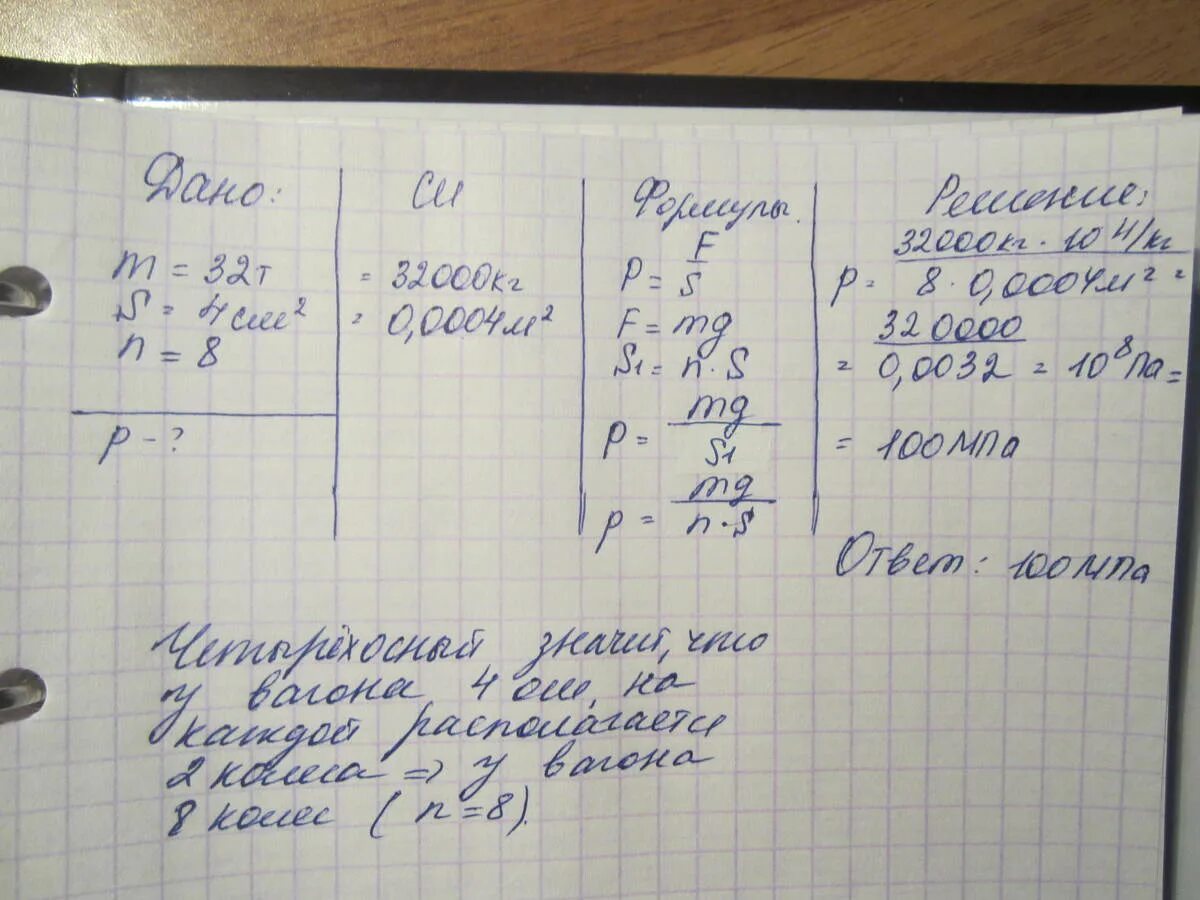 Дано:
m = 32т
S = 4см²
n = 8
p - ?
СИ
= 32000кг
= 0,0004м²
Формулы.
p = F/S
F = mg
S₁ = n · S
p = mg/S₁
p = mg/n · S
Решение:
p = 32000кг · 10 Н/кг / 8 · 0,0004м² =
= 320000/0,0032 = 10⁸ Па =
= 100 МПа
Ответ: 100 МПа
Четырёхосный значит, что
у вагона 4 оси, на
каждой располагается
2 колеса => у вагона
8 колес (n = 8).